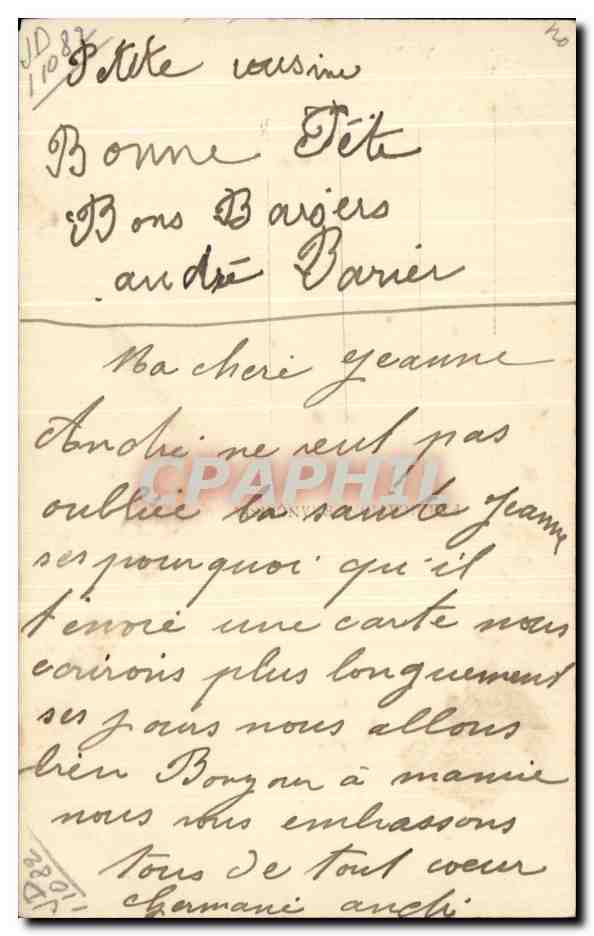 JD
11082
20
Petite cousine
Bonne Fête
Bons Baisers
andré Barier
Ma cheré Jeanne
André ne veut pas
oubliée ta sainte Jeanne
ses pourquoi qu'il
t'envoie une carte nous
ecrirons plus longuement
ses jours nous allons
bien Bonjour à mamie
nous vous embrassons
tous de tout coeur
Germaine andré
CPAPHIL
JD82
11082